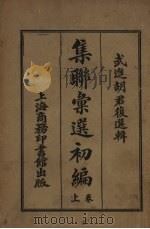 武進胡君復選輯
集聯彙選初編
卷上
上海商務印書館出版